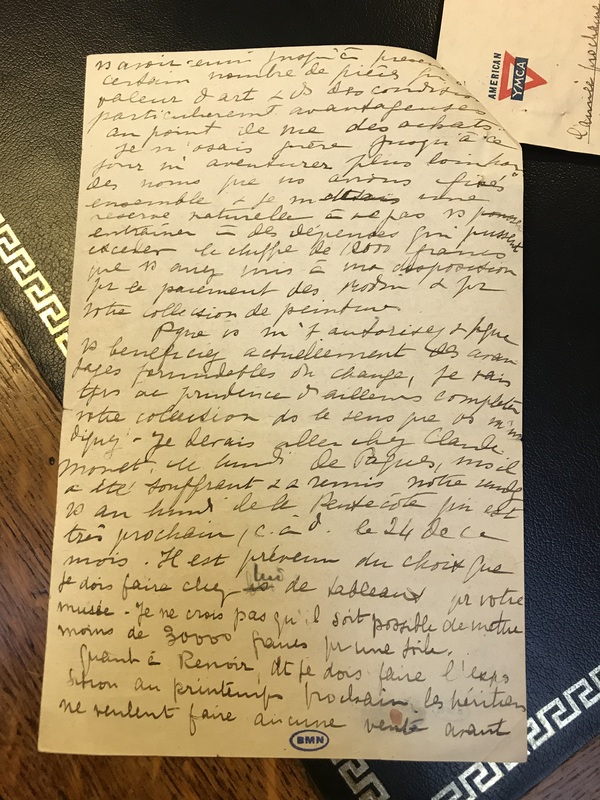 vs avoir réuni jusqu'à présen
certain nombre de pièces
valeur d'art & ds des condit
particulièrement avantageuses
au point de vue des achats.
Je n'osais guère jusqu'à ce
jour m'aventurer plus loin
des noms que ns avions fixés
ensemble & je mettais une
réserve naturelle à ne pas vs
entraîner à des dépenses qui
excéder le chiffre de francs
que vs avez mis à ma disposition
pr le paiement des Rodin & pr
votre collection de peinture.
Pque vs m'y autorisez & pque
vs bénéficiez actuellement des avan
tages formidables du change, je vais
avec prudence d'ailleurs compléter
votre collection ds le sens que vs m'in
diquez - Je devais aller chez Claude
Monet, le lundi de Pâques, mais il
a été souffrant & a remis notre rendez
vs au lundi de la Pentecôte qui est
très prochain, c. à d. le 24 de ce
mois. Il est prévenu du choix que
je dois faire chez lui de tableaux pr votre
musée - Je ne crois pas qu'il soit possible de mettre
moins de 30000 francs pr une toile.
Quant à Renoir, dt je dois faire l'expo
sition au printemps prochain, les héritiers
ne veulent faire aucune vente avant
BMN
AMERICAN
YMCA
l'année prochaine